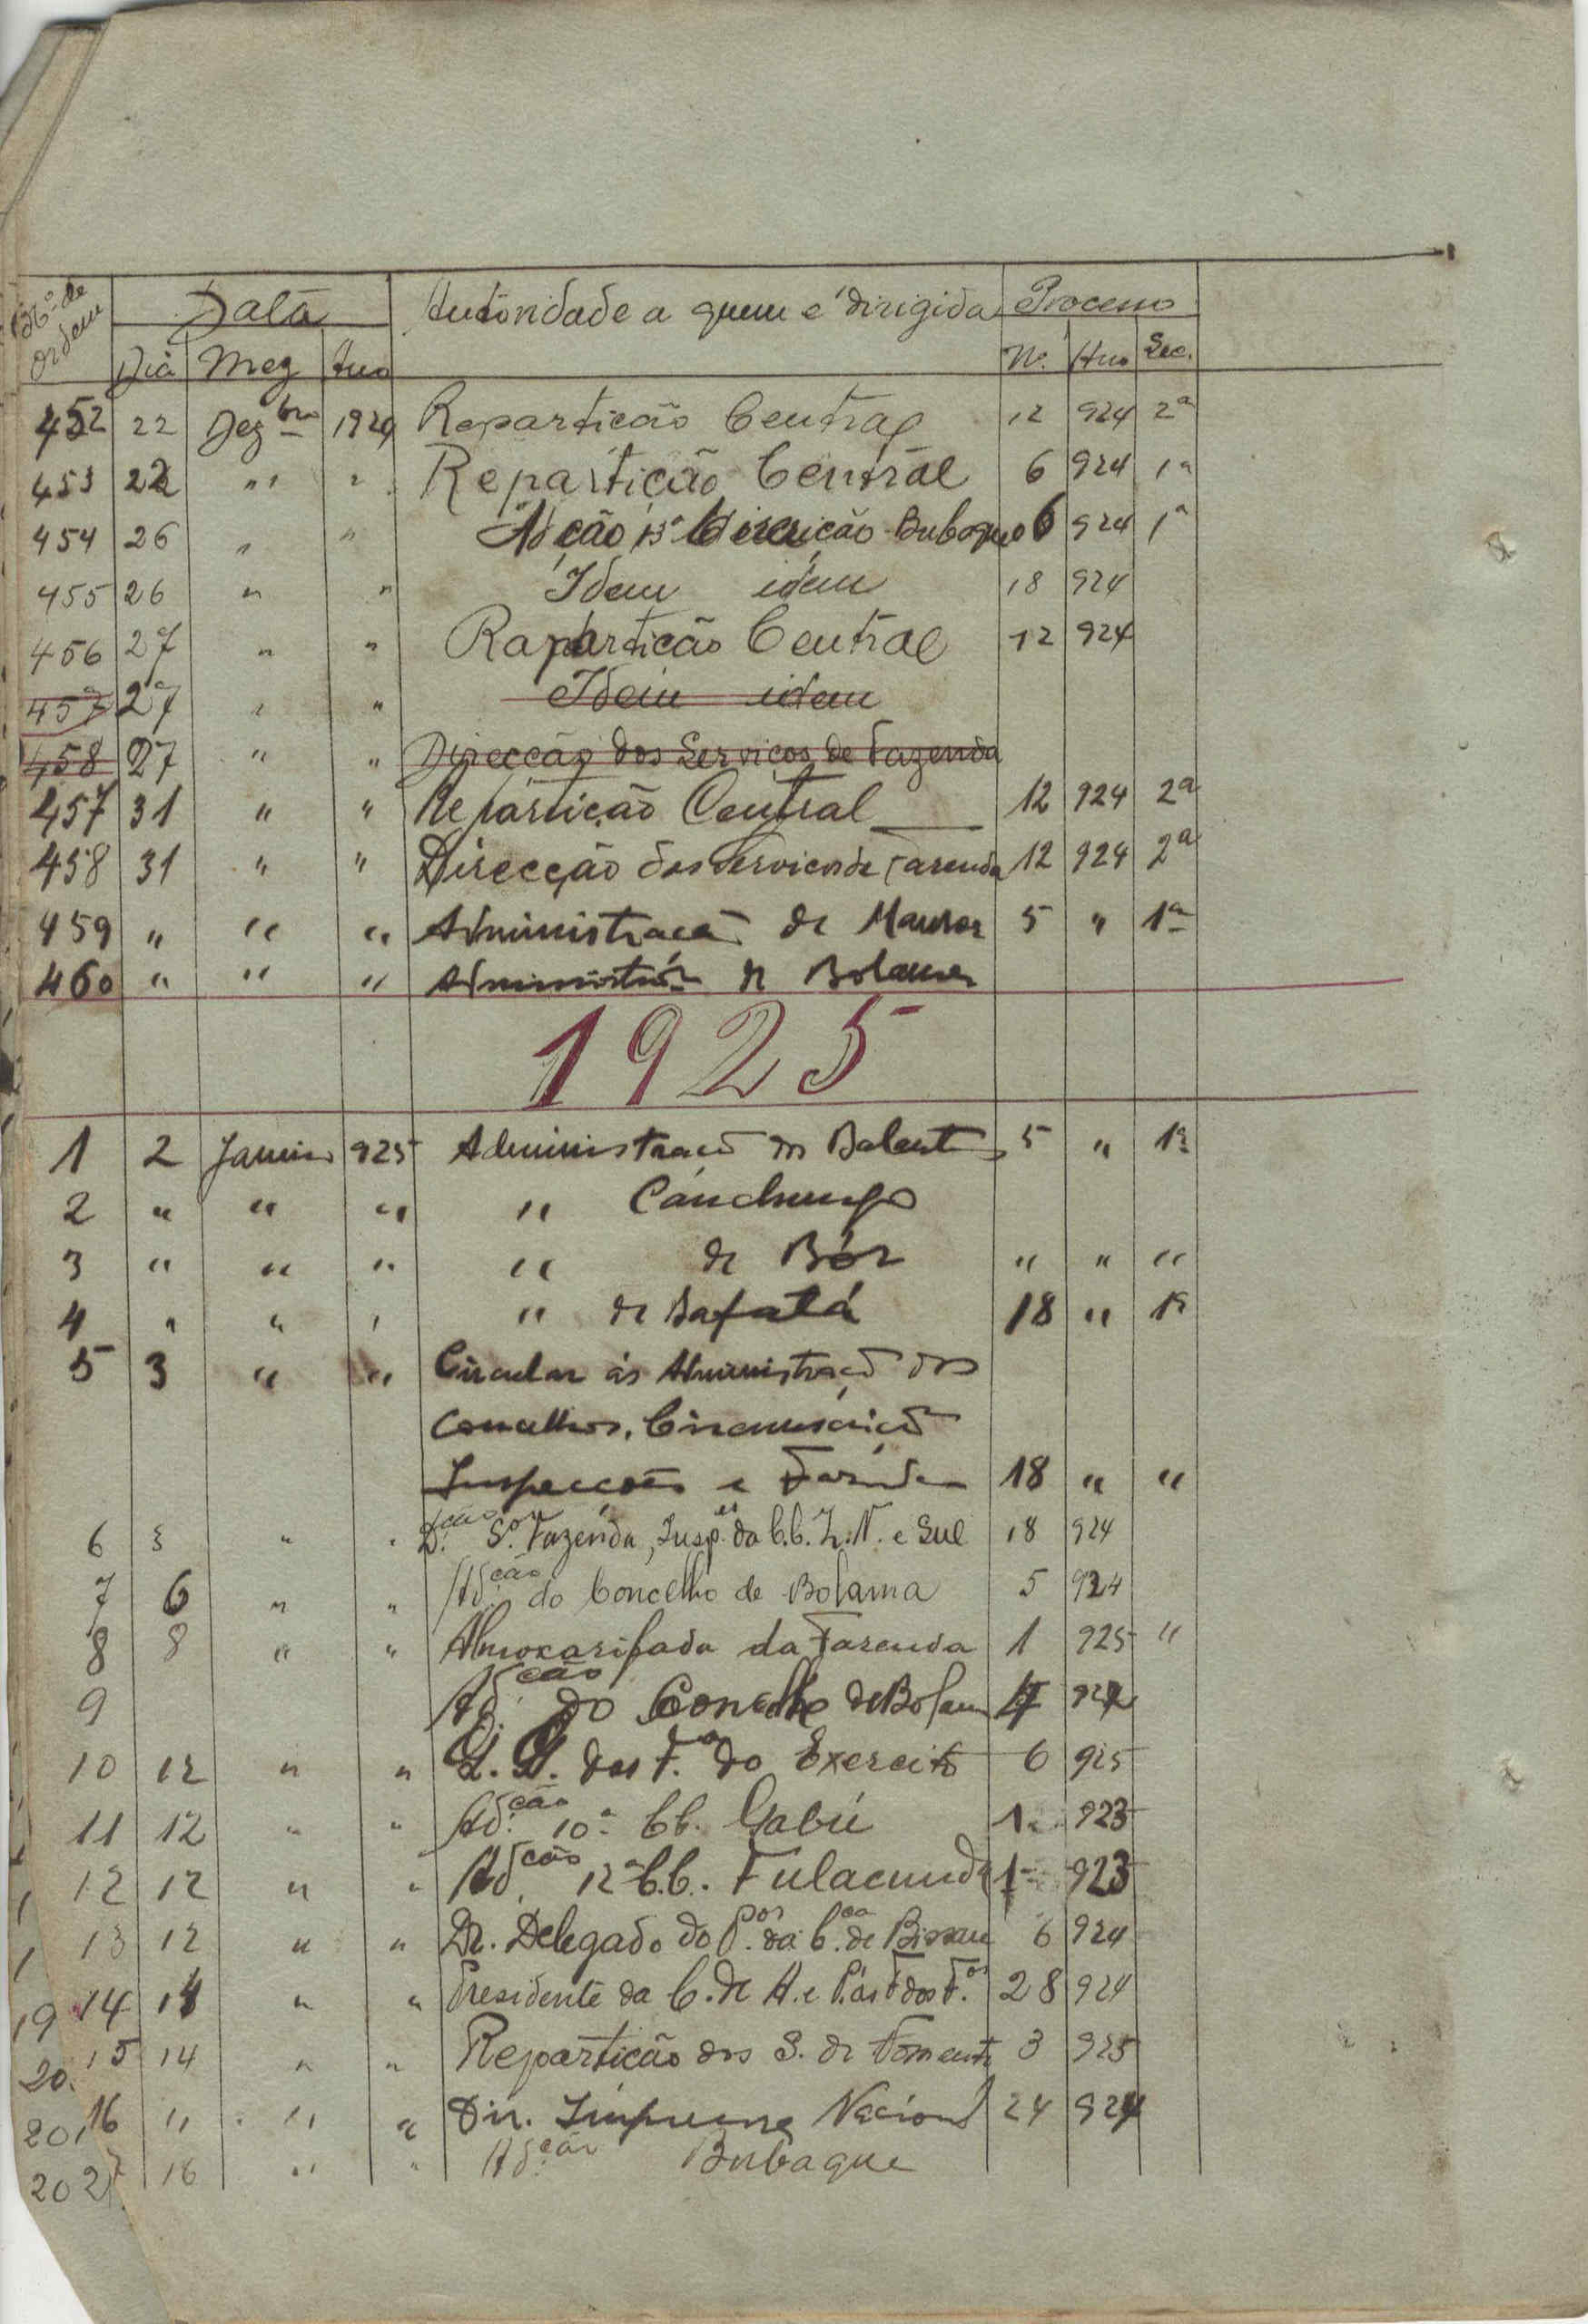 Nº de ordem Data Autoridade a quem é dirigida Processo
Dia Mez Ano Nº. Ano Sec.
452 22 Dezbro 1924 Repartição Central 12 924 2ª
453 22 " " Repartição Central 6 924 1ª
454 26 " " Adção Bubaque 6 924 1ª
455 26 " " Idem idem 18 924
456 27 " " Repartição Central 12 924
457 27 " " Idem idem
458 27 " " Direcção dos Serviços de Fazenda
457 31 " " Repartição Central 12 924 2ª
458 31 " " Direcção dos Serviços de Fazenda 12 924 2ª
459 " " " Administração de 5 " 1ª
460 " " " de Bolama
1925
1 2 Janeiro 925 Administração dos 5 " 1ª
2 " " " " Canchungo
3 " " " " de Bór " " "
4 " " " " de Bafatá 18 " 1ª
5 3 " " Circular ás Administraçõ dos
Concelhos, Circunscriçõ
Inspecções e Fazenda 18 " "
6 3 " " Dcção S.os Fazenda, Insp.es da C.C. Z. N. e Sul 18 924
7 6 " " Ad.ção do Concelho de Bolama 5 924
8 8 " " Almoxarifado da Fazenda 1 925 "
9 Ad.ção do Concelho de Bolam 924
10 12 " " do Exercito 6 925
11 12 " " Ad.ção 10ª CC. Gabú 1 923
12 12 " " Ad.ção 12ª C.C. Fulacunda 1 923
13 12 " " Dr. Delegado do P.dor da C.ca de Bissau 6 924
19 14 14 " " Presidente da C. de A. e 28 924
20. 15 14 " " Repartição dos S. de Fomento 3 925
20, 16 " " " Dir. Imprensa Nacional 24 924
202 16 " " Ad.ção Bubaque